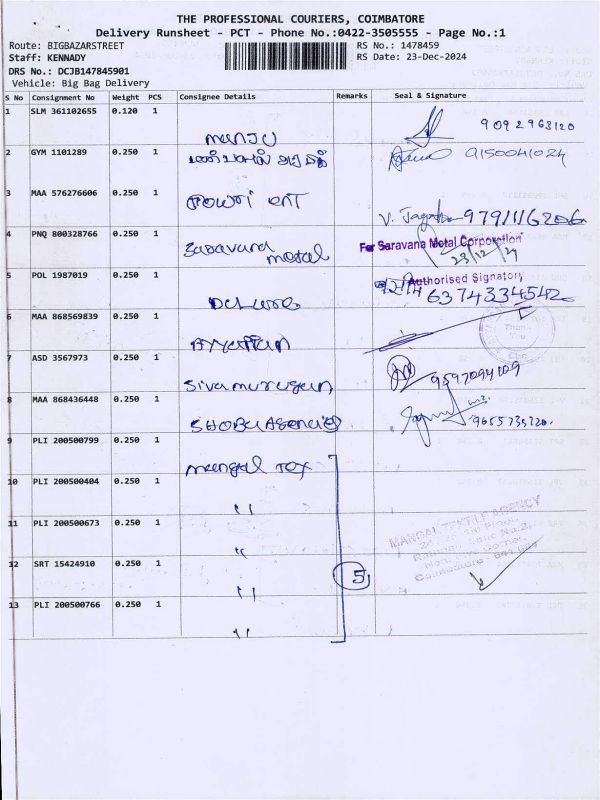 THE PROFESSIONAL COURIERS, COIMBATORE
Delivery Runsheet - PCT - Phone No.:0422-3505555 - Page No.:1
Route: BIGBAZARSTREET RS No.: 1478459
Staff: KENNADY RS Date: 23-Dec-2024
DRS No.: DCJB147845901
Vehicle: Big Bag Delivery
S No Consignment No Weight PCS Consignee Details Remarks Seal & Signature
1 SLM 361102655 0.120 1
manju 9092963120
2 GYM 1101289 0.250 1
9150041024
3 MAA 576276606 0.250 1
V. 9791116206
4 PNQ 800328766 0.250 1
Saravana metal For Saravana Metal Corporation
23/12/24
5 POL 1987019 0.250 1 Authorised Signatory
6374334542
6 MAA 868569839 0.250 1
Thank You
7 ASD 3567973 0.250 1
Sivamurugan 9597094109
8 MAA 868436448 0.250 1
SHOBU Agencies 9655735720.
9 PLI 200500799 0.250 1
mangal Tex
10 PLI 200500404 0.250 1
"
11 PLI 200500673 0.250 1
" MANGAL TEXTILE AGENCY
12 SRT 15424910 0.250 1
" 5
13 PLI 200500766 0.250 1
"